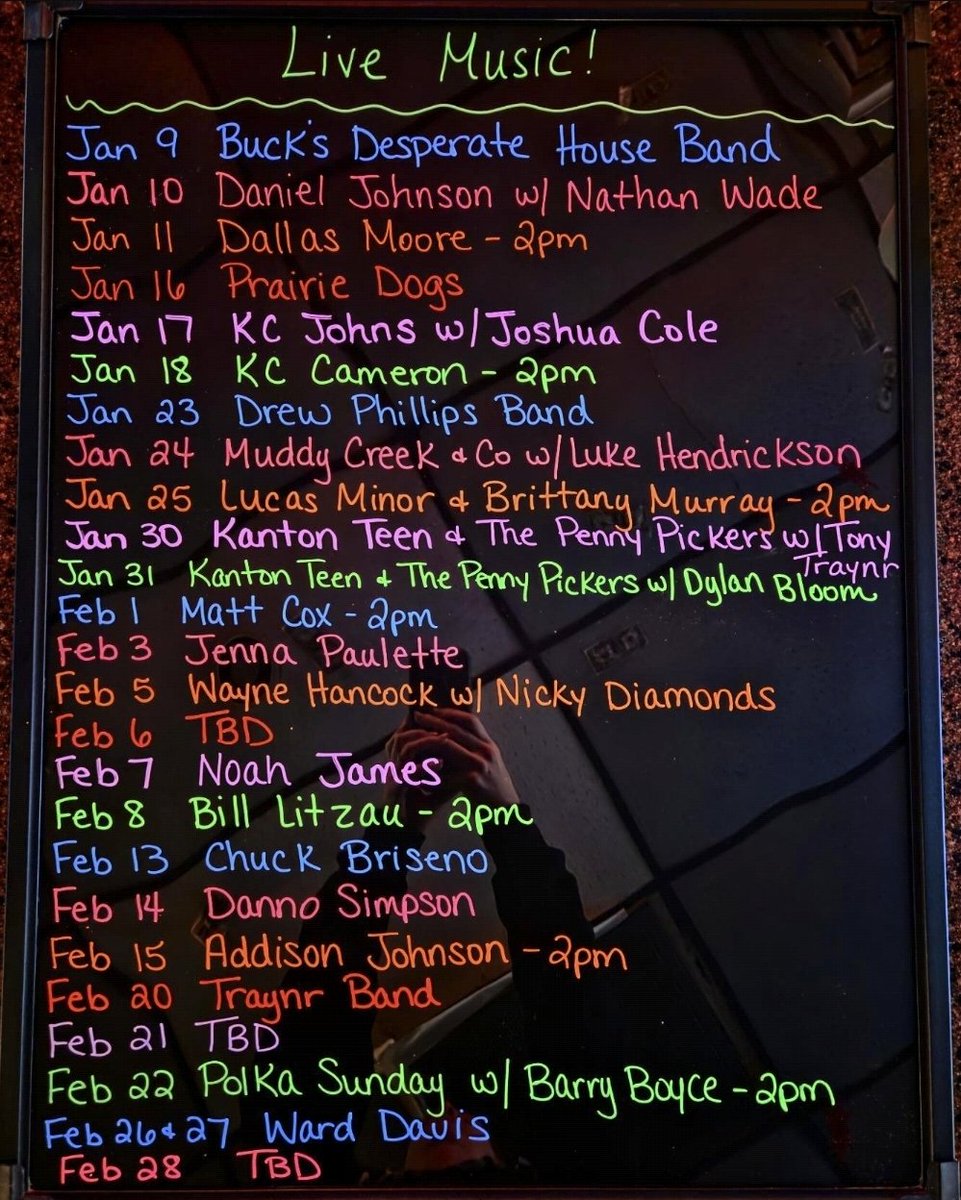 Live Music!
Jan 9 Buck's Desperate House Band
Jan 10 Daniel Johnson w/ Nathan Wade
Jan 11 Dallas Moore - 2pm
Jan 16 Prairie Dogs
Jan 17 KC Johns w/ Joshua Cole
Jan 18 KC Cameron - 2pm
Jan 23 Drew Phillips Band
Jan 24 Muddy Creek & Co w/ Luke Hendrickson
Jan 25 Lucas Minor & Brittany Murray - 2pm
Jan 30 Kanton Teen & The Penny Pickers w/ Tony
Traynr
Jan 31 Kanton Teen & The Penny Pickers w/ Dylan Bloom
Feb 1 Matt Cox - 2pm
Feb 3 Jenna Paulette
Feb 5 Wayne Hancock w/ Nicky Diamonds
Feb 6 TBD
Feb 7 Noah James
Feb 8 Bill Litzau - 2pm
Feb 13 Chuck Briseno
Feb 14 Danno Simpson
Feb 15 Addison Johnson - 2pm
Feb 20 Traynr Band
Feb 21 TBD
Feb 22 Polka Sunday w/ Barry Boyce - 2pm
Feb 26 & 27 Ward Davis
Feb 28 TBD